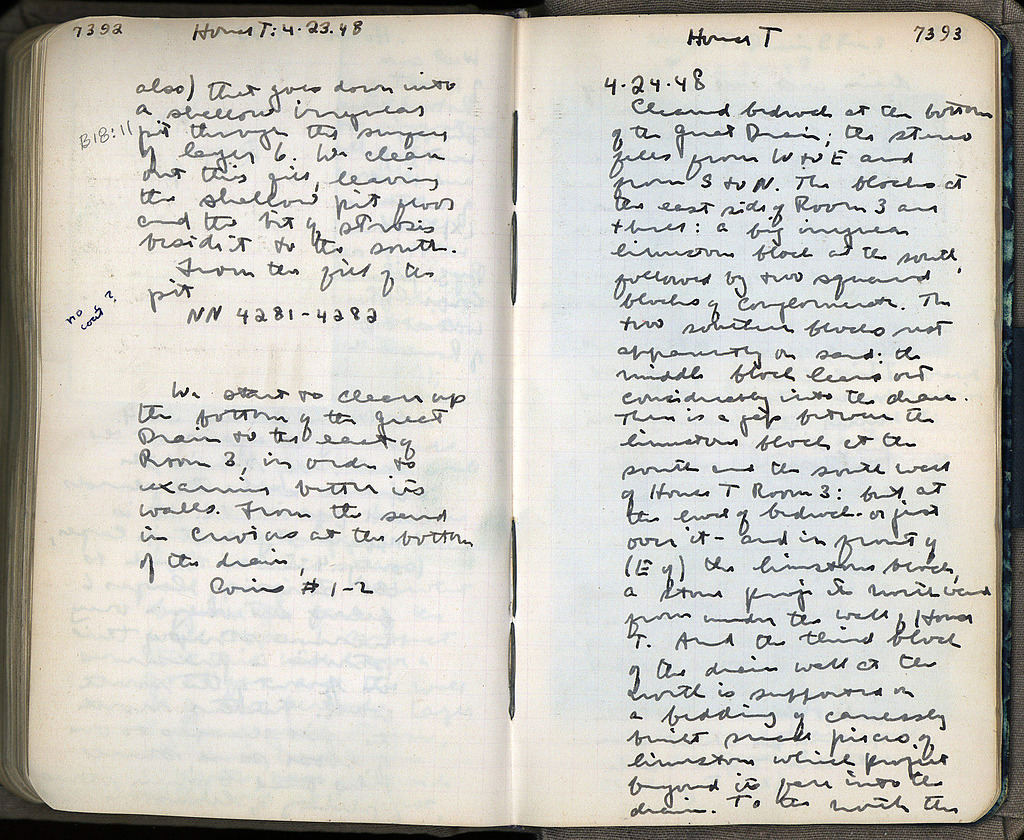 7392
House T: 4.23.48
also) that goes down into
a shallow irregular
B18:11
pit through the surface
of layer 6. We clean
out this pit, leaving
the shallow pit floor
and the bit of strosis
beside it to the south.
From the fill of the
pit
no
coins?
NN 4281-4282
We start to clean up
the bottom of the Great
Drain to the east of
Room 3, in order to
examine better its
walls. From the sand
in crevices at the bottom
of the drain,
Coins # 1-2
House T
7393
4.24.48
Cleaned bedrock at the bottom
of the Great Drain; the stereo
from W to E and
from S to N. The blocks at
the east side of Room 3 are
three: a big irregular
limestone block at the south,
followed by two squared
blocks of conglomerate. The
two southern blocks rest
apparently on sand: the
middle block leans out
considerably into the drain.
There is a gap between the
limestone block at the
south and the south wall
of House T Room 3: but at
the level of bedrock - or just
over it - and in front of
(E of) the limestone block,
a stone projects northward
from under the wall of House
T. And the third block
of the drain wall at the
north is supported on
a bedding of carelessly
built small pieces of
limestone which project
beyond its face into the
drain. To the north the